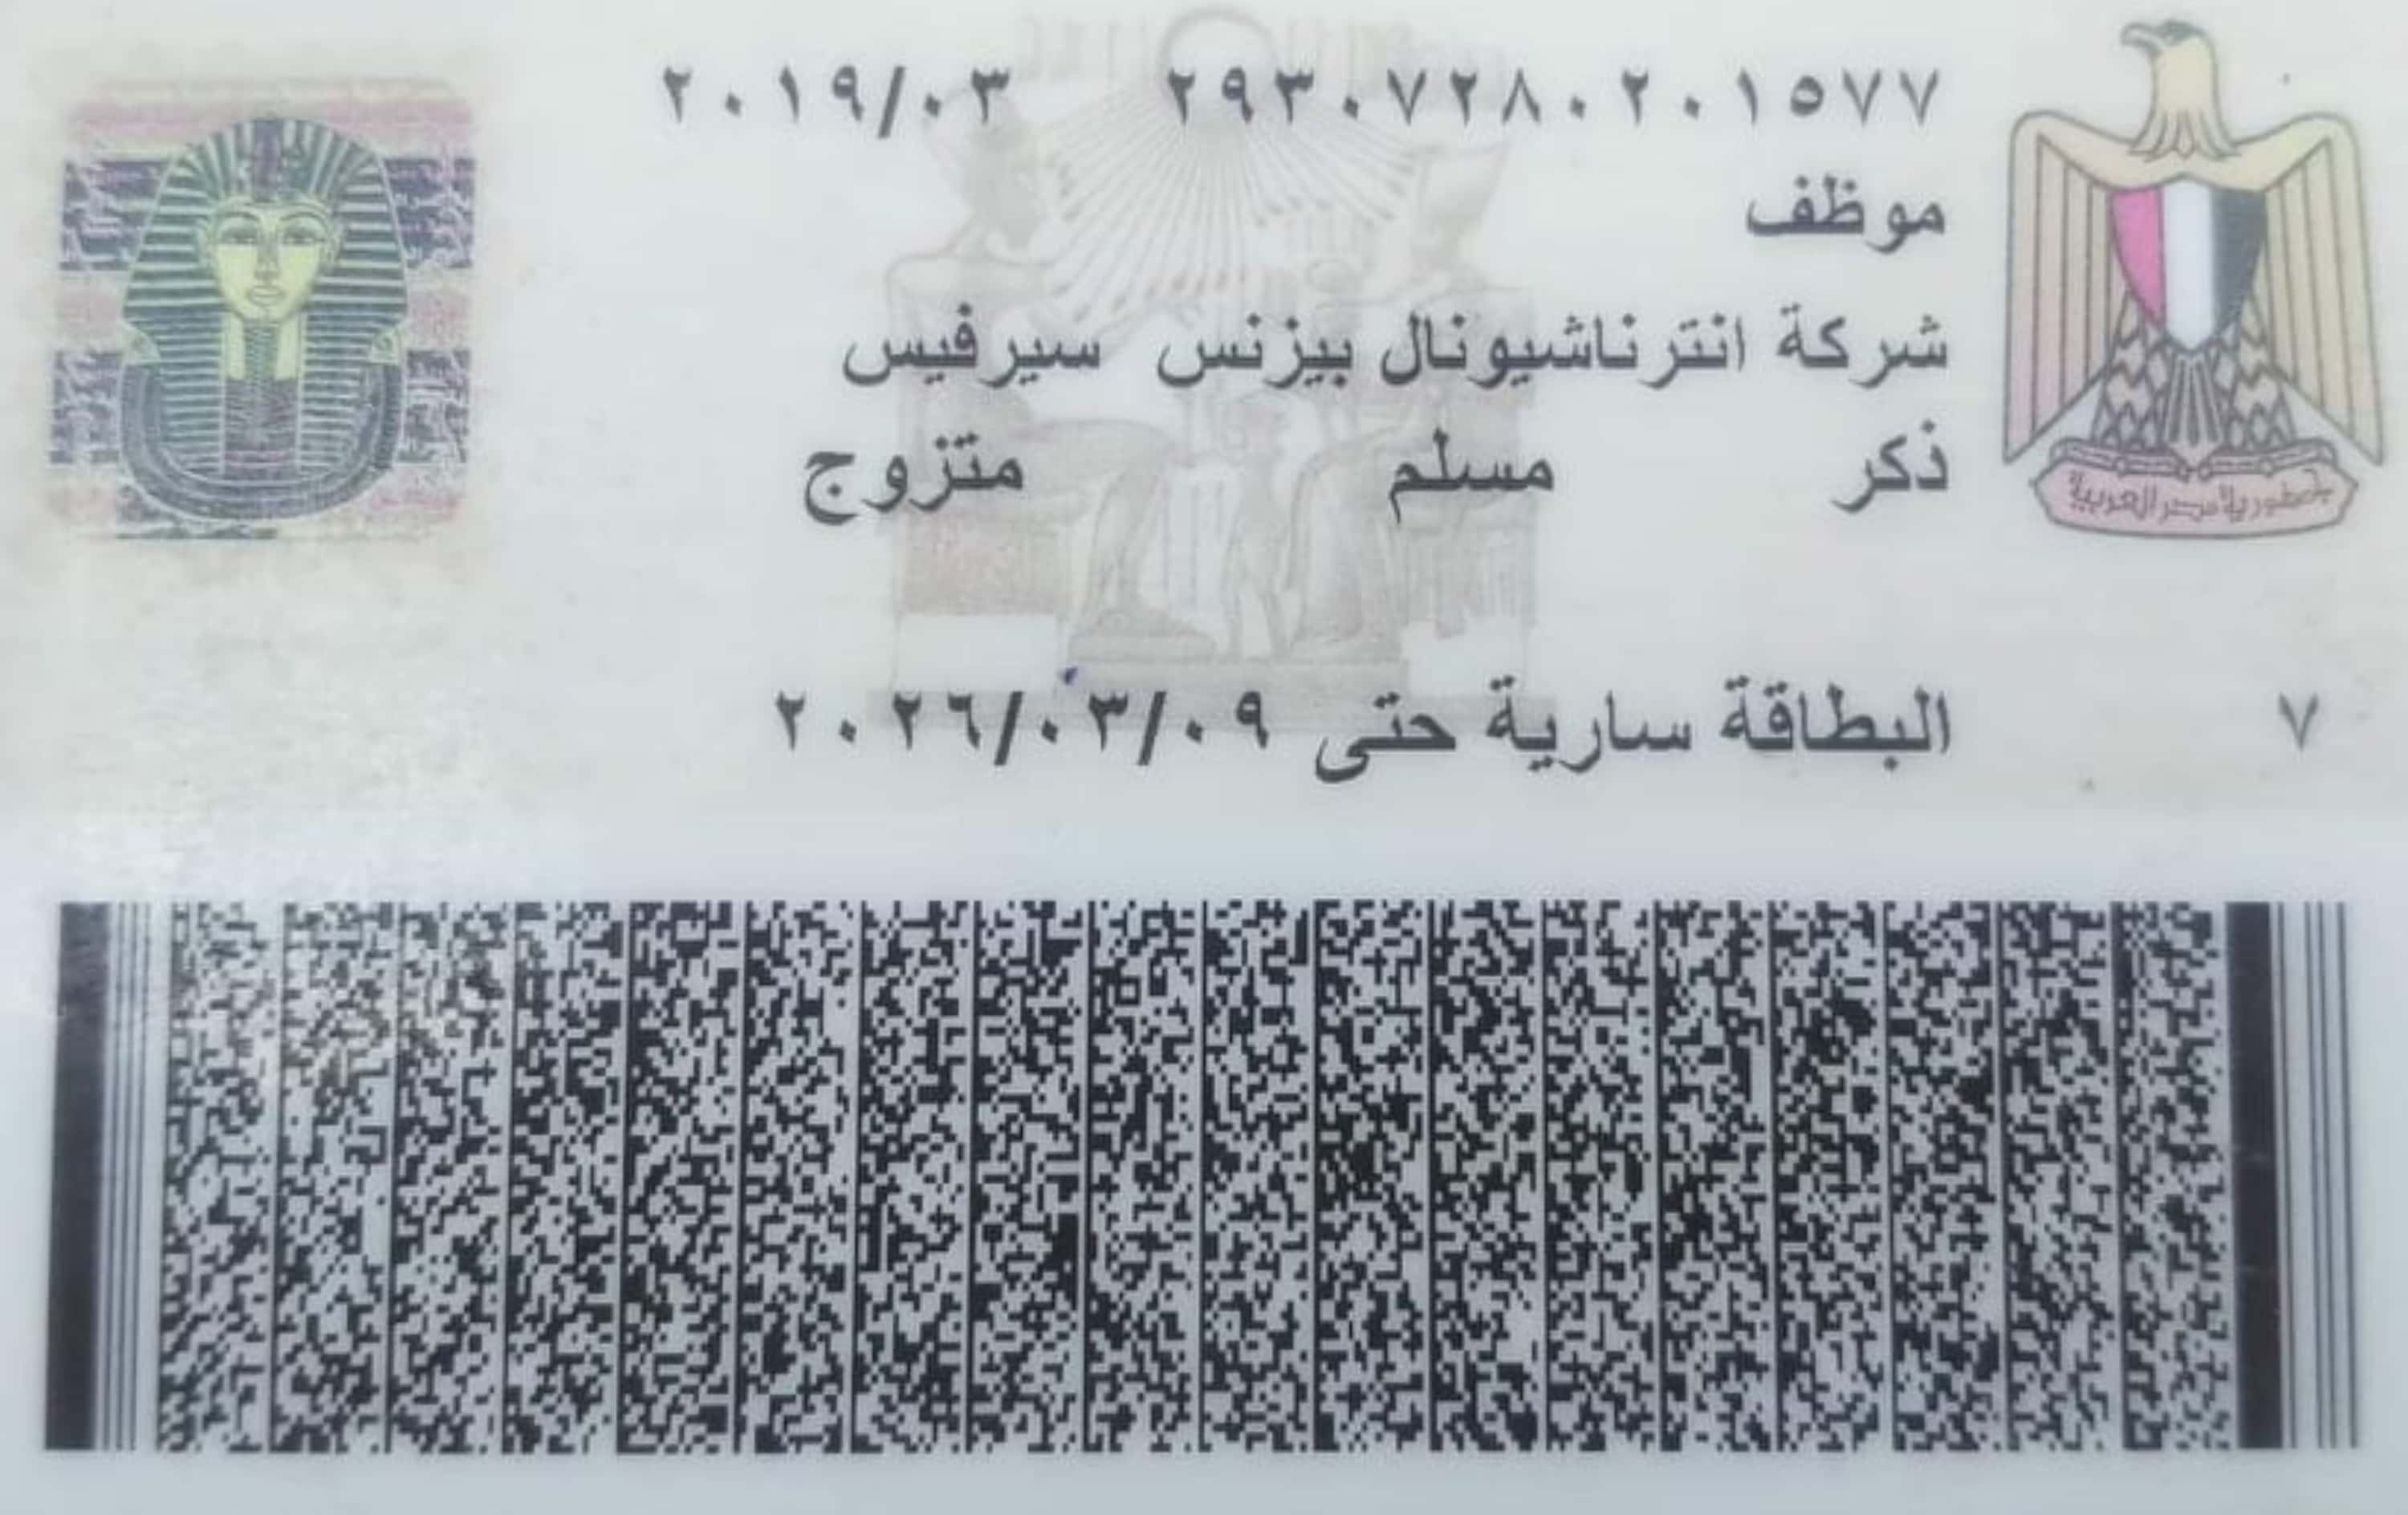 ٢٩٣٠٧٢٨٠٢٠١٥٧٧ ٢٠١٩/٠٣
موظف
شركة انترناشيونال بيزنس سيرفيس
ذكر مسلم متزوج
جمهورية مصر العربية
٧ البطاقة سارية حتى ٢٠٢٦/٠٣/٠٩